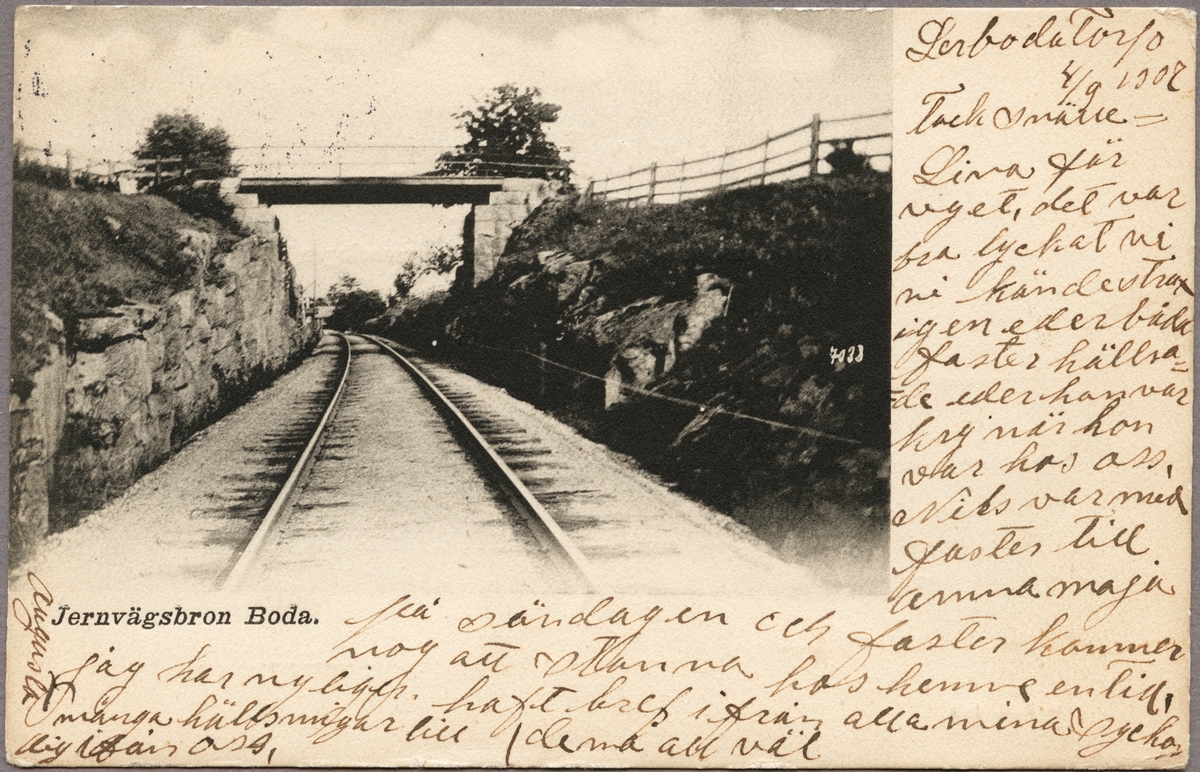 Lerboda Torp
4/9 1902
Tack snälle
Lina för
vyet, det var
bra lyckat vi
vi kände strax
igen eder båda
faster hällsa=
de eder hon var
kry när hon
var hos oss,
Nils var med
faster till
anna maja
på söndagen och faster kommer
nog att stanna hos henne en tid,
jag har nyligen haft bref ifrån alla mina syskon
de må alt väl
många hällsnigar till
dig ifrån oss,
Augusta
Jernvägsbron Boda.
7033